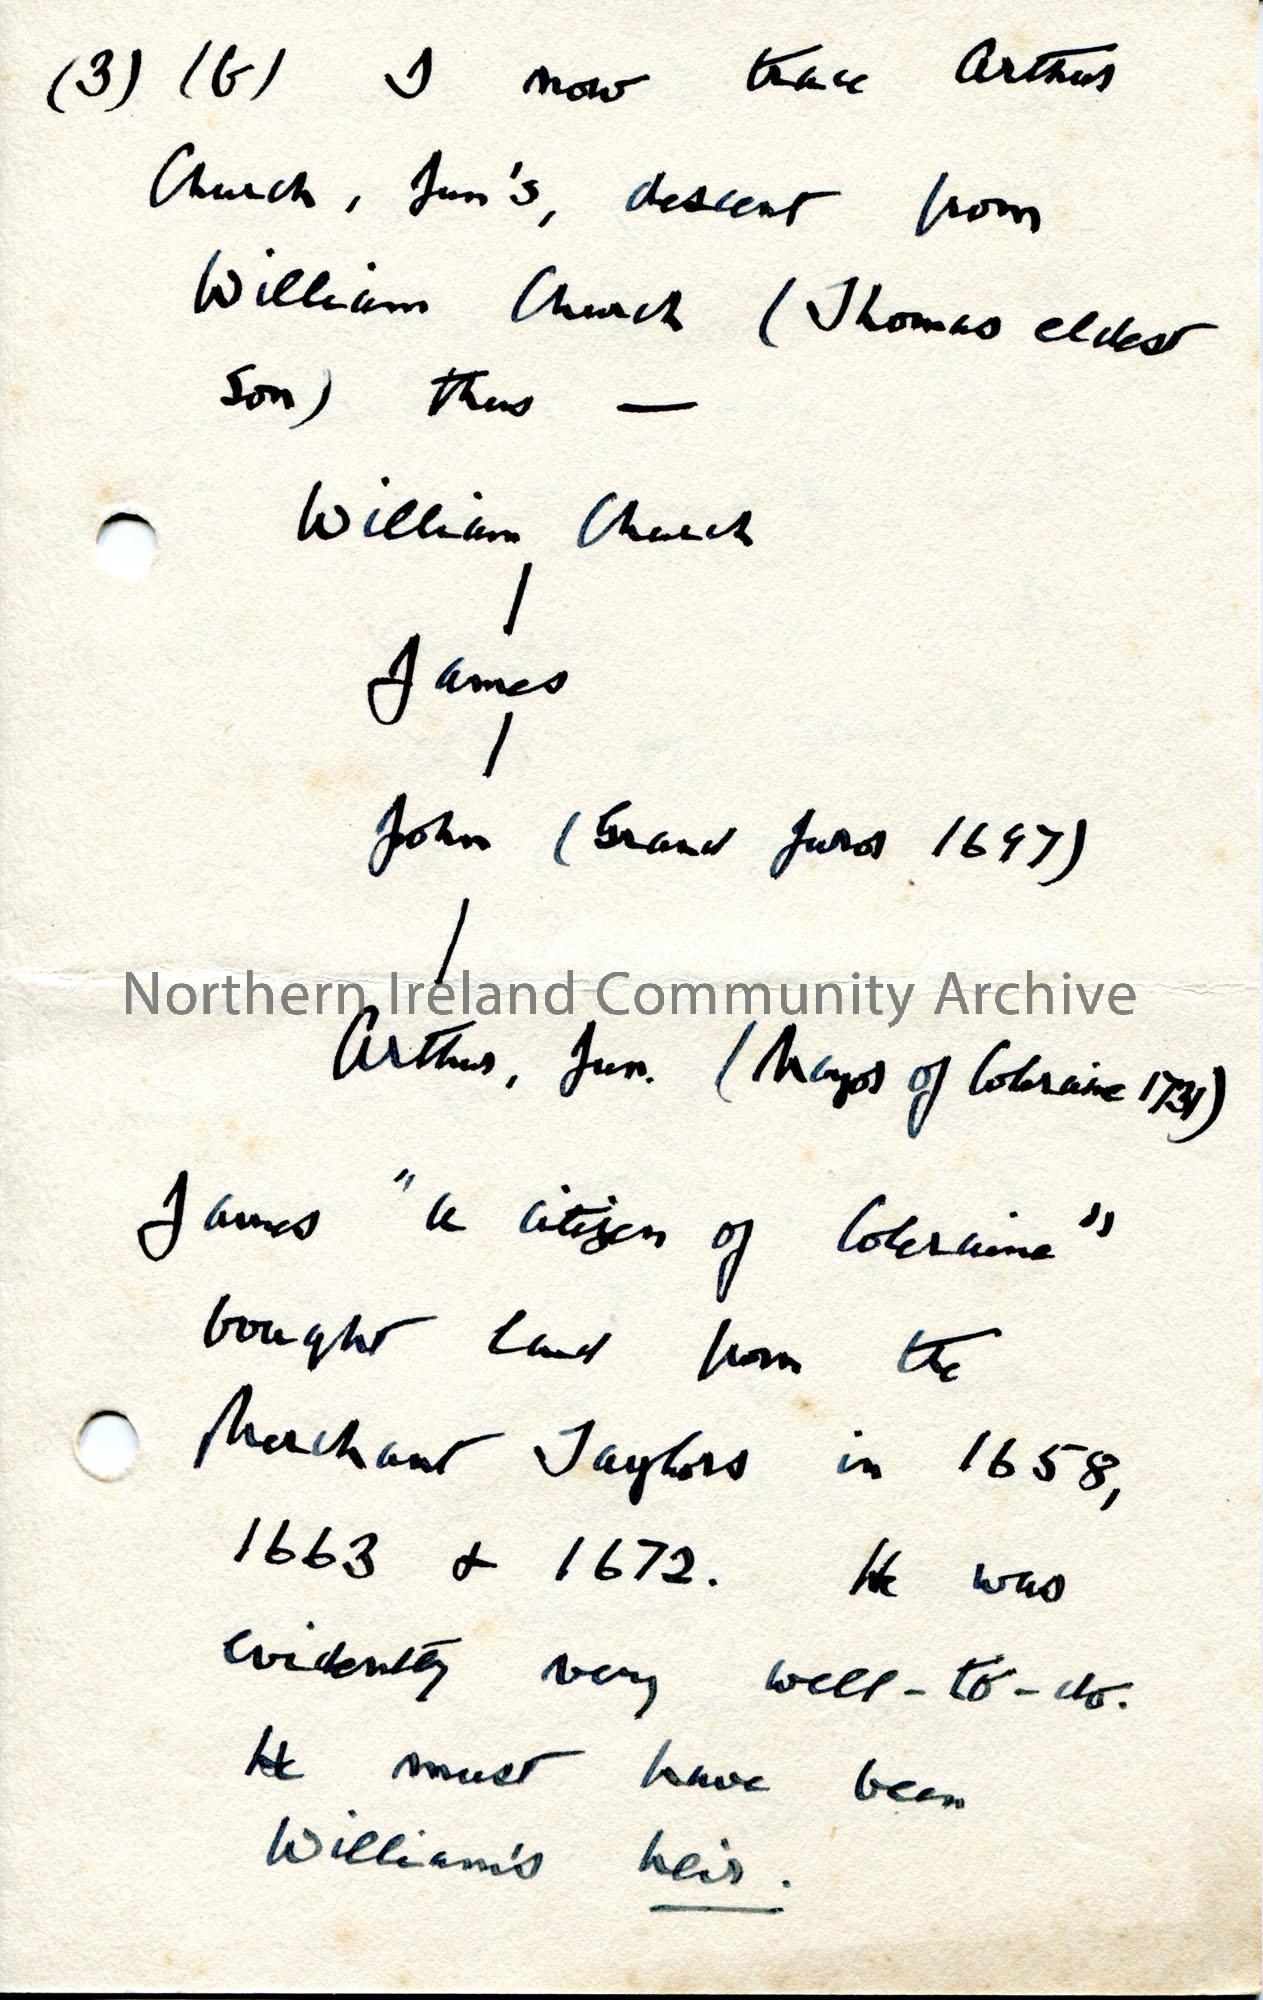 (3) (6) I now trace Arthur
Church, Jun's, descent from
William Church (Thomas eldest
son) thus —
William Church
James
John (Grand Juror 1697)
Northern Ireland Community Archive
Arthur, Jun. (Mayor of Coleraine 1731)
James "a citizen of Coleraine"
bought land from the
Merchant Taylors in 1658,
1663 & 1672. He was
evidently very well-to-do.
He must have been
William's heir.